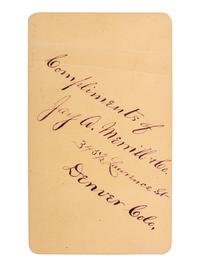 Compliments of
Jay A. Merrill & Co.
Lawrence St
Denver Colo.